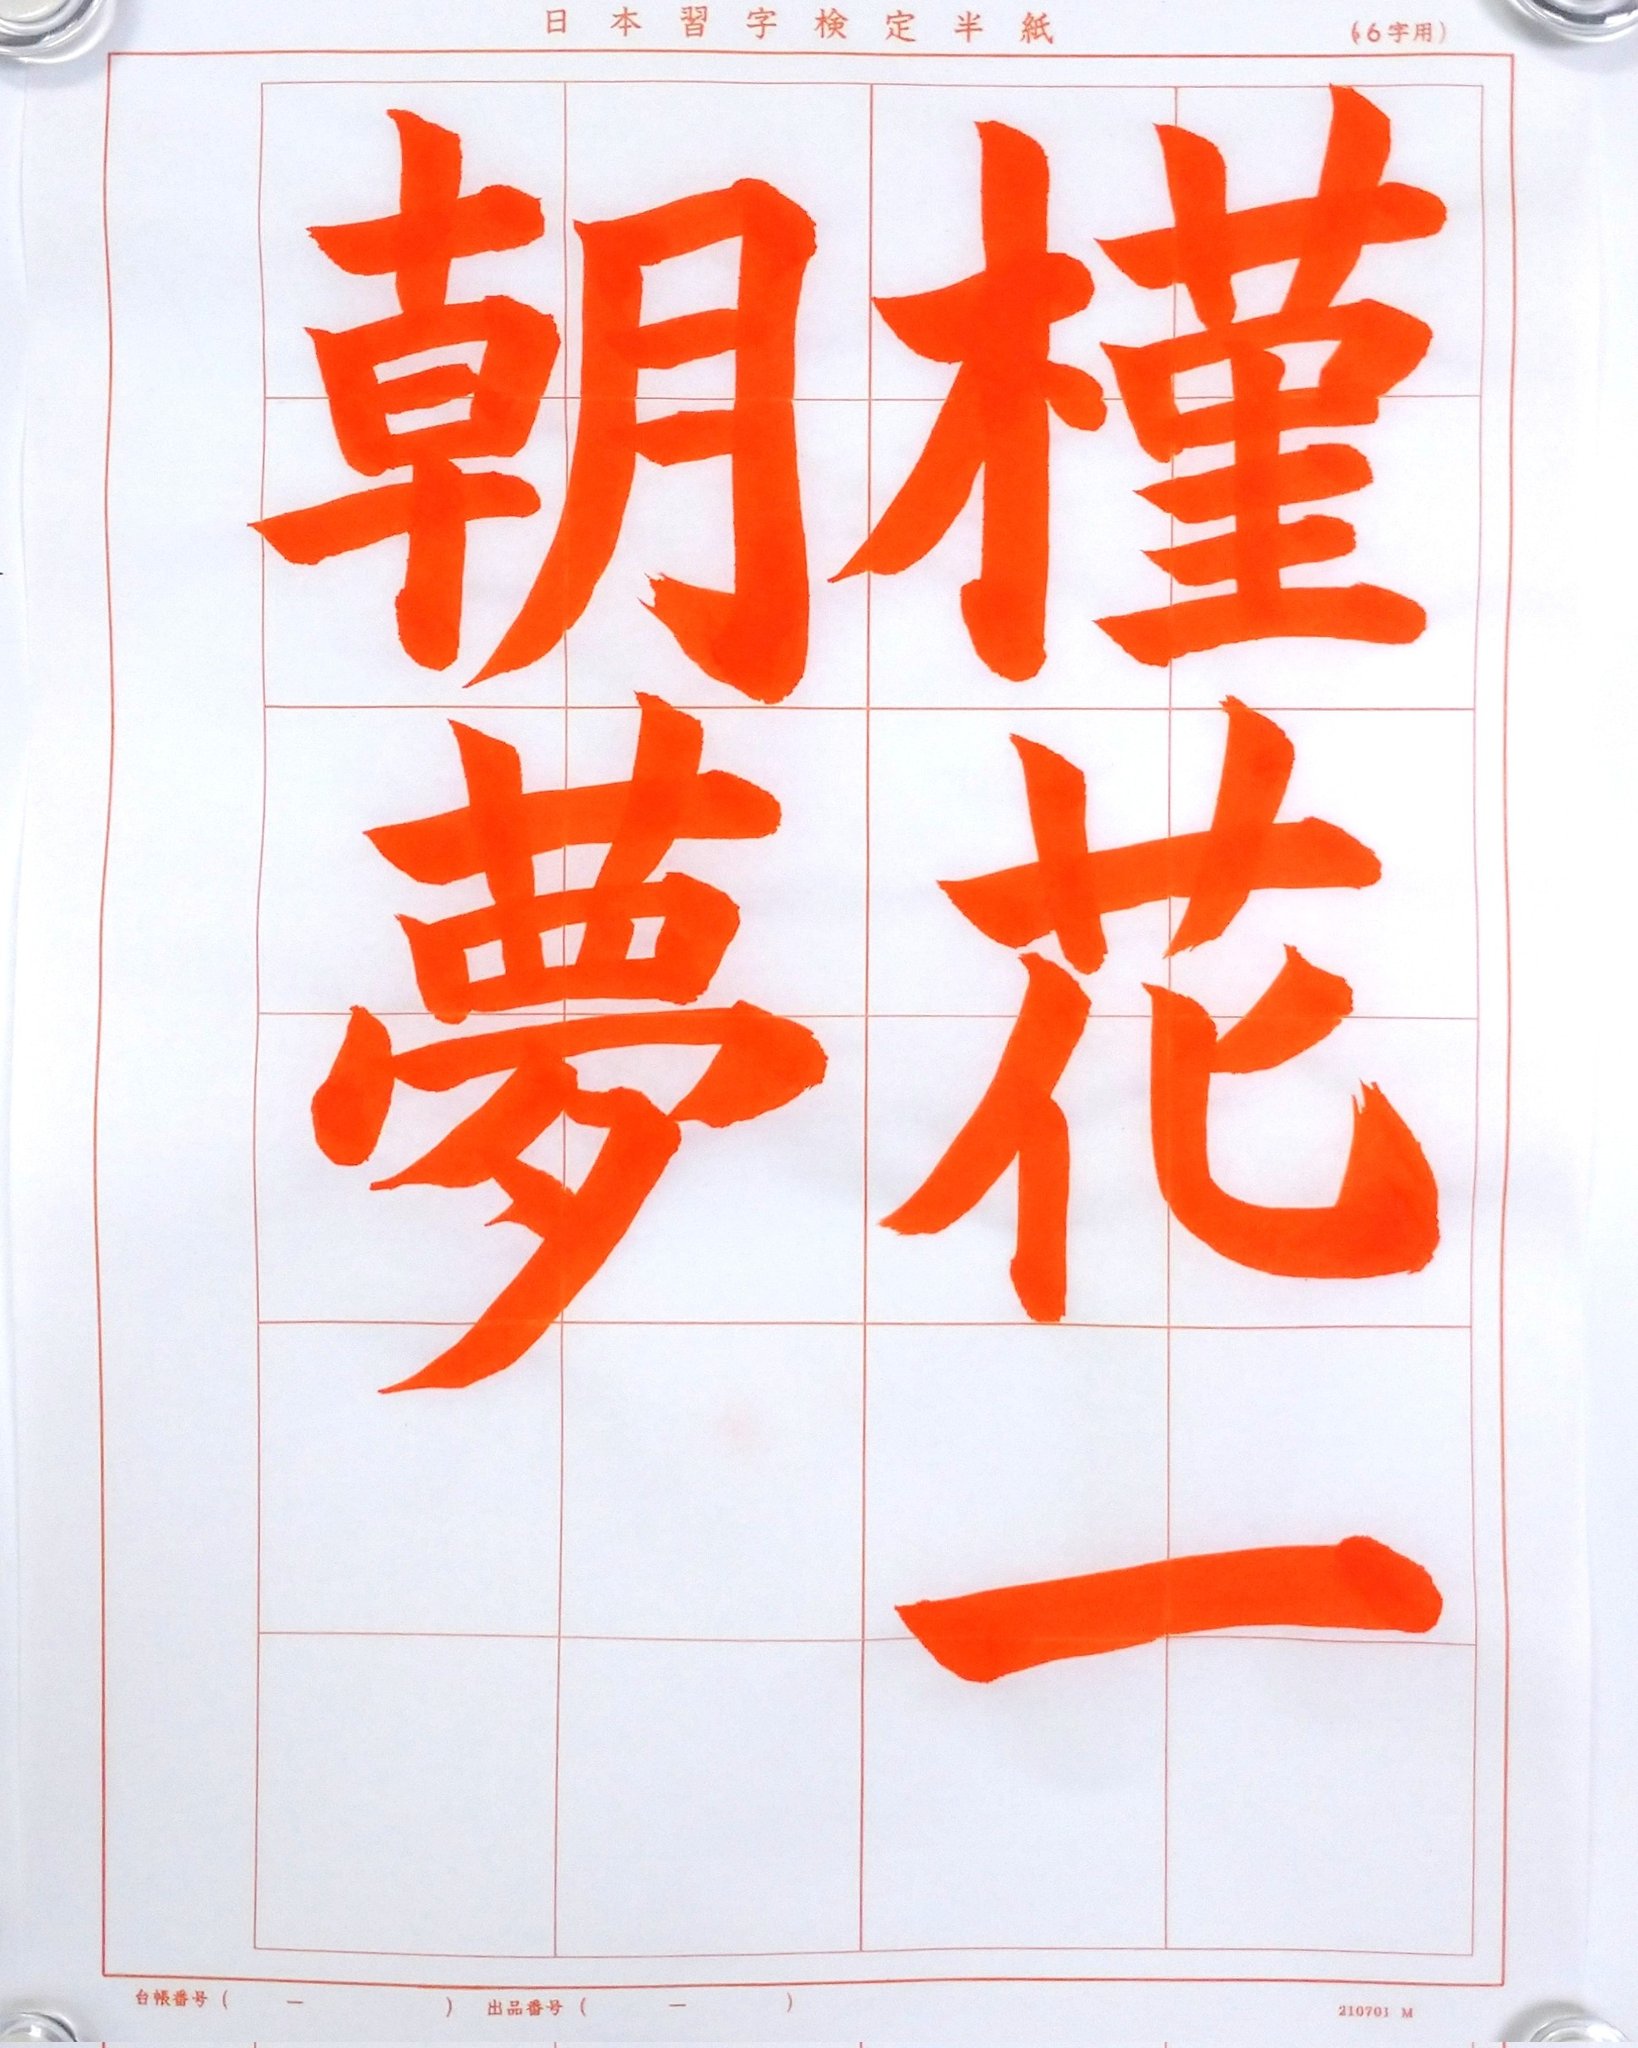 日本習字検定半紙
(6字用)
槿花一
朝夢
台帳番号( ー ) 出品番号( ー )
210701 M